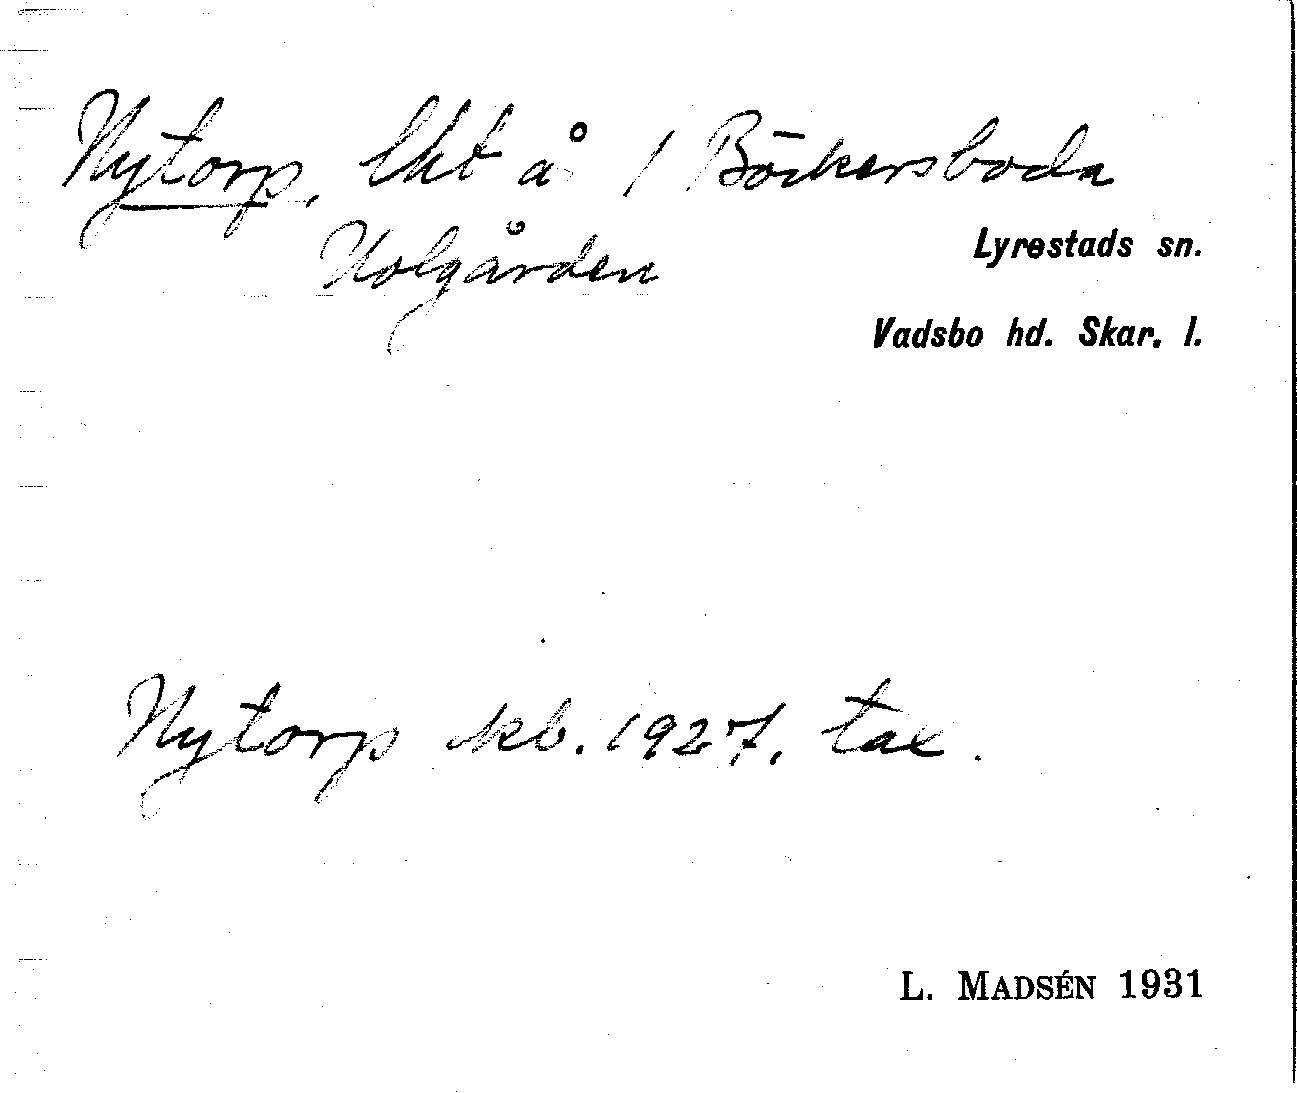 Nytorp, lht å 1 Böckersboda
Holgården
Lyrestads sn.
Vadsbo hd. Skar. l.
Nytorp skb. 1927, tax.
L. MADSÉN 1931